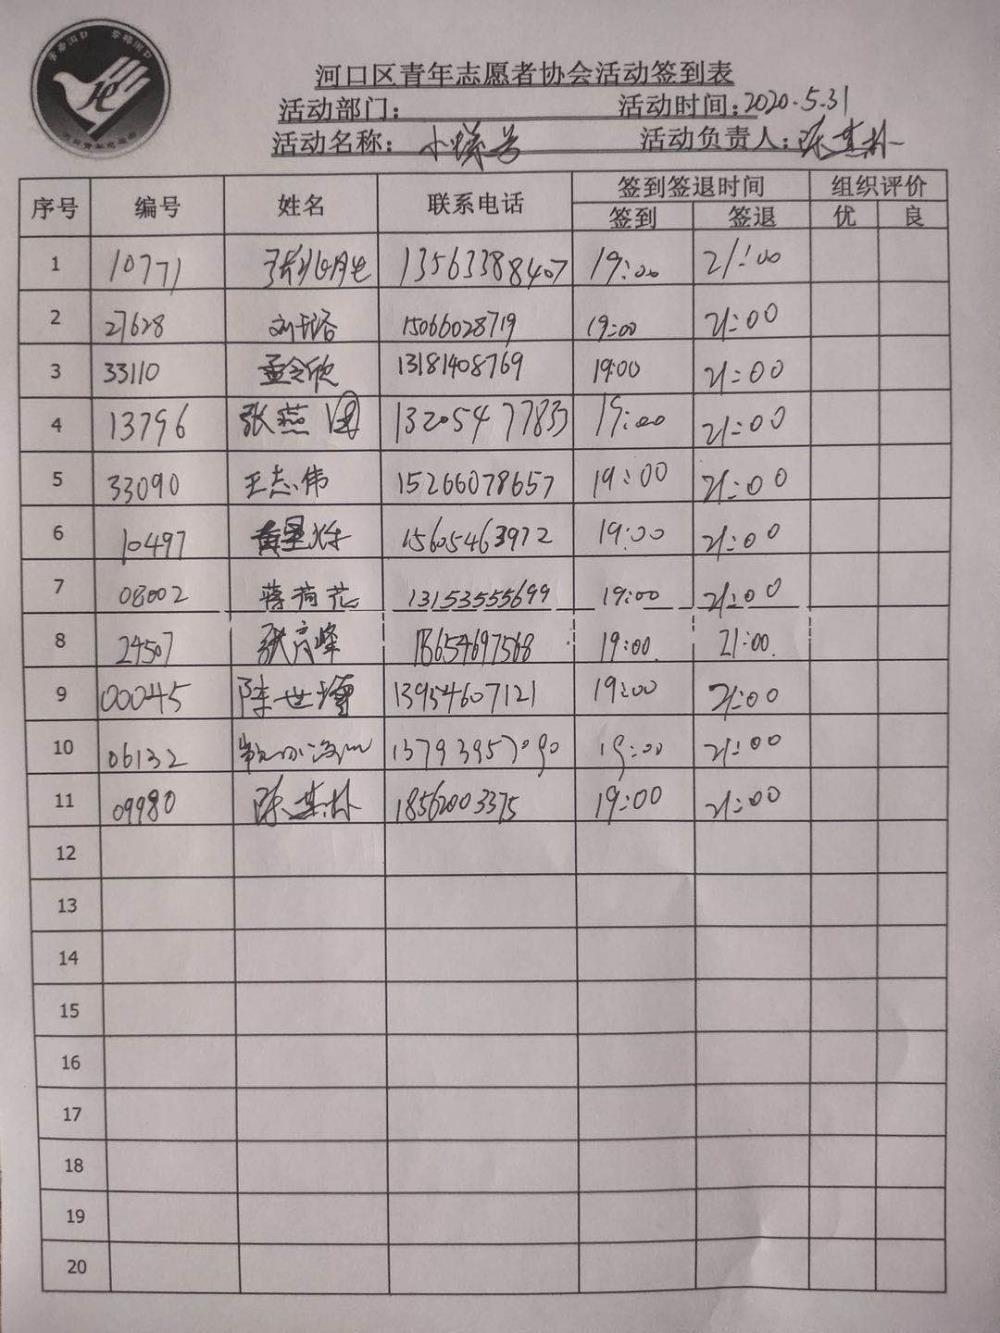 河口区青年志愿者协会活动签到表
活动部门： 活动时间：2020.5.31
活动名称： 活动负责人：
序号 编号 姓名 联系电话 签到签退时间 组织评价
签到 签退 优 良
1 10771 13563388407 19:00 21:00
2 27628 15066028719 19:00 21:00
3 33110 孟令欣 13181408769 19:00 21:00
4 13796 张燕 13205477833 19:00 21:00
5 33090 王志伟 15266078657 19:00 21:00
6 10497 15605463972 19:00 21:00
7 08002 蒋荷花 13153555699 19:00 21:00
8 24507 19:00 21:00
9 00045 13954607121 19:00 21:00
10 06132 13793957090 19:00 21:00
11 09980 18562003375 19:00 21:00
12
13
14
15
16
17
18
19
20